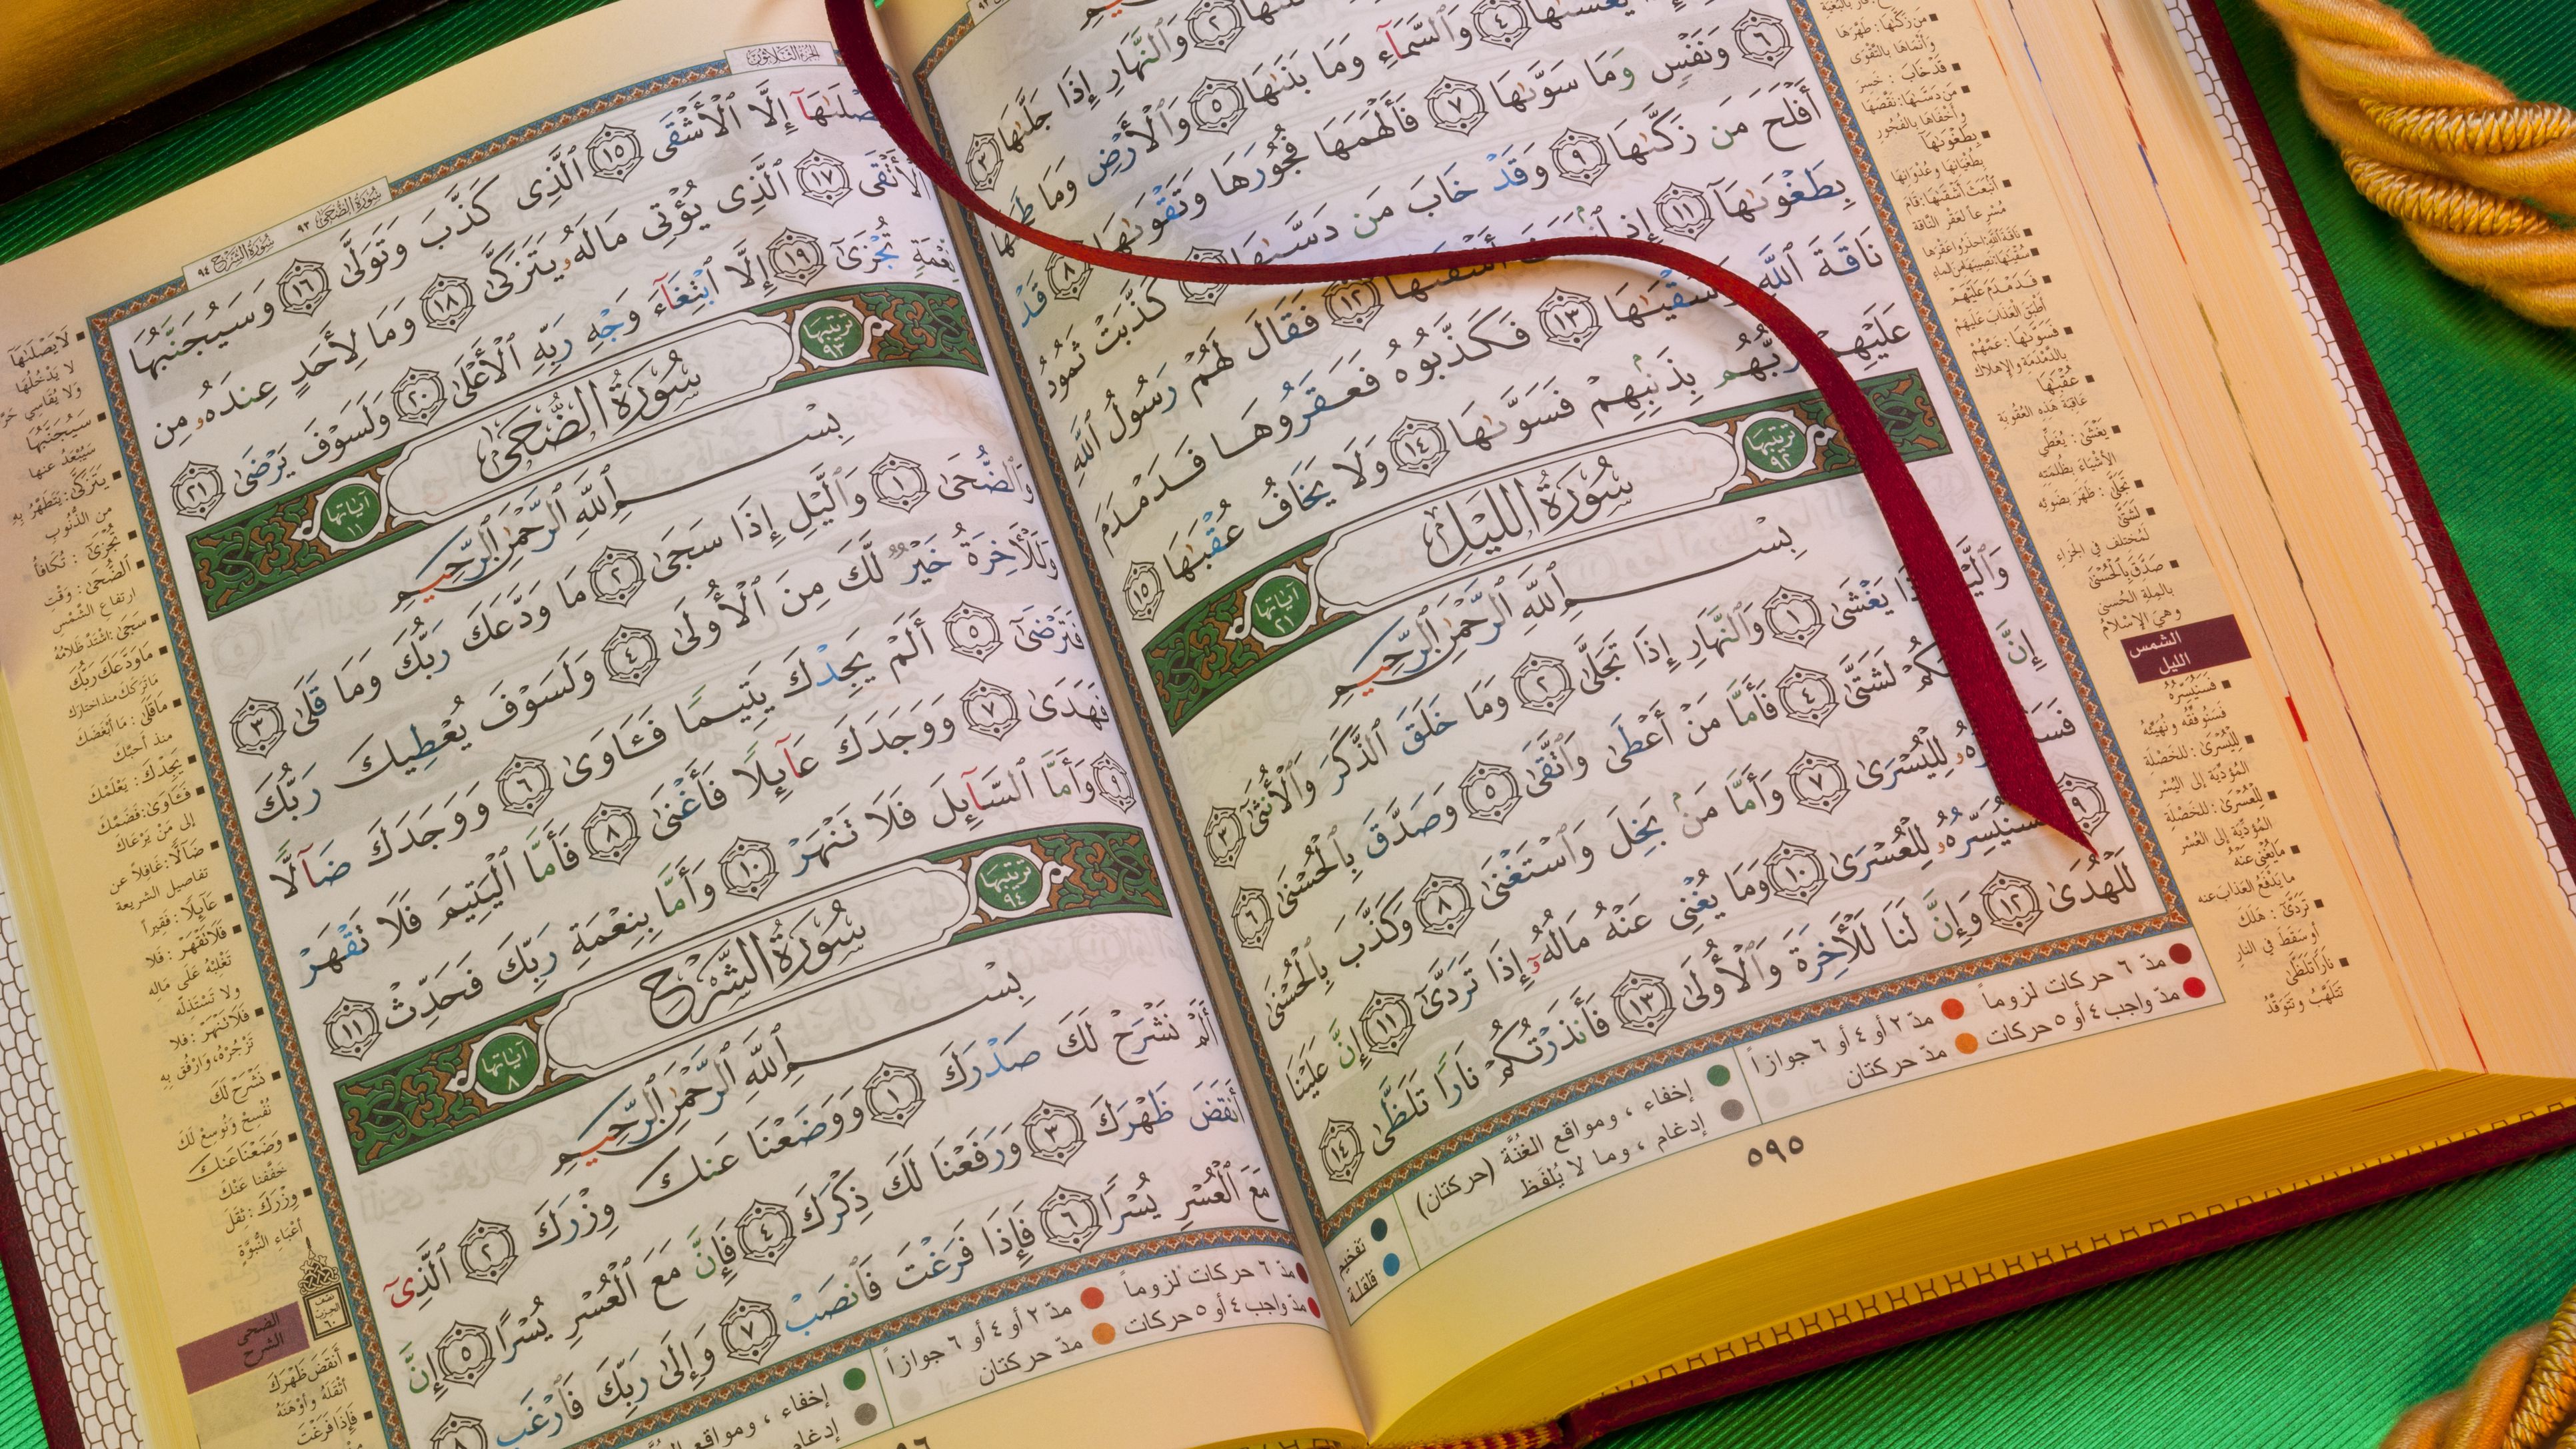 وَٱلنَّهَارِ إِذَا جَلَّىٰهَا ٣
وَٱلسَّمَآءِ وَمَا بَنَىٰهَا ٥ وَٱلْأَرْضِ وَمَا طَحَىٰهَا
٦ وَنَفْسٍ وَمَا سَوَّىٰهَا ٧ فَأَلْهَمَهَا فُجُورَهَا وَتَقْوَىٰهَا ٨ قَدْ
أَفْلَحَ مَن زَكَّىٰهَا ٩ وَقَدْ خَابَ مَن دَسَّىٰهَا ١٠ كَذَّبَتْ ثَمُودُ
بِطَغْوَىٰهَآ ١١ إِذِ أَشْقَىٰهَا ١٢ فَقَالَ لَهُمْ رَسُولُ ٱللَّهِ
نَاقَةَ ٱللَّهِ وَسُقْيَٰهَا ١٣ فَكَذَّبُوهُ فَعَقَرُوهَا فَدَمْدَمَ
عَلَيْهِمْ رَبُّهُم بِذَنۢبِهِمْ فَسَوَّىٰهَا ١٤ وَلَا يَخَافُ عُقْبَٰهَا ١٥
ترتيبها ٩٢ سُورَةُ اللَّيْلِ آياتها ٢١
بِسْمِ ٱللَّهِ ٱلرَّحْمَٰنِ ٱلرَّحِيمِ
وَٱلَّيْلِ إِذَا يَغْشَىٰ ١ وَٱلنَّهَارِ إِذَا تَجَلَّىٰ ٢ وَمَا خَلَقَ ٱلذَّكَرَ وَٱلْأُنثَىٰٓ ٣
إِنَّ لَشَتَّىٰ ٤ فَأَمَّا مَنْ أَعْطَىٰ وَٱتَّقَىٰ ٥ وَصَدَّقَ بِٱلْحُسْنَىٰ ٦
فَسَنُيَسِّرُهُۥ لِلْيُسْرَىٰ ٧ وَأَمَّا مَنۢ بَخِلَ وَٱسْتَغْنَىٰ ٨ وَكَذَّبَ بِٱلْحُسْنَىٰ
٩ فَسَنُيَسِّرُهُۥ لِلْعُسْرَىٰ ١٠ وَمَا يُغْنِى عَنْهُ مَالُهُۥٓ إِذَا تَرَدَّىٰٓ ١١ إِنَّ عَلَيْنَا
لَلْهُدَىٰ ١٢ وَإِنَّ لَنَا لَلْأَخِرَةَ وَٱلْأُولَىٰ ١٣ فَأَنذَرْتُكُمْ نَارًا تَلَظَّىٰ ١٤
مدّ ٦ حركات لزوماً مدّ ٢ أو ٤ أو ٦ جوازاً
مدّ واجب ٤ أو ٥ حركات مدّ حركتان
إخفاء ، ومواقع الغُنَّة (حركتان)
إدغام ، وما لا يُلفَظ
تفخيم
قلقلة
٥٩٥
مَن زَكَّىٰهَا : طَهَّرَهَا
وَأَنْمَاهَا بِالتَّقْوَى
قَدْ خَابَ : خَسِرَ
مَن دَسَّىٰهَا : نَقَصَهَا
وأَخْفَاهَا بِالفُجُورِ
بِطَغْوَىٰهَا
بِطُغْيَانِهَا وَعُدْوَانِهَا
فَدَمْدَمَ عَلَيْهِمْ
أَطْبَقَ العَذَابَ عَلَيْهِمْ
فَسَوَّىٰهَا : عَمَّهُمْ
بِالدَّمْدَمَةِ وَالإهلاكِ
عُقْبَٰهَا
عَاقِبَةَ هَذِهِ العُقُوبَةِ
يَغْشَىٰ : يُغَطِّي
الأشْيَاءَ بِظُلْمَتِهِ
تَجَلَّىٰ : ظَهَرَ بِضَوْئِهِ
لَشَتَّىٰ
لَمُختَلِفٌ في الجَزاءِ
صَدَّقَ بِٱلْحُسْنَىٰ
بِالمِلَّةِ الحُسنى
وهي الإسْلامُ
الشمس
الليل
فَسَنُيَسِّرُهُ
فَسَنُوَفِّقُه وَنُهَيِّئُه
لِلْيُسْرَىٰ : للخَصْلَةِ
المُؤدِّيَة إلى اليُسْرِ
لِلْعُسْرَىٰ : للخَصْلَةِ
المُؤدِّيَة إلى العُسْرِ
مَا يُغْنِى عَنْهُ
ما يَدْفَعُ العَذابَ عنه
تَرَدَّىٰٓ : هَلَكَ
أو سَقَطَ في النارِ
نَارًا تَلَظَّىٰ
تَتَلَهَّبُ وتَتَوَقَّدُ
الجزء الثلاثون
سُورَةُ الضُّحَىٰ ٩٣ سُورَةُ الشَّرْحِ ٩٤
يَصْلَىٰهَآ إِلَّا ٱلْأَشْقَى ١٥ ٱلَّذِى كَذَّبَ وَتَوَلَّىٰ ١٦ وَسَيُجَنَّبُهَا
ٱلْأَتْقَى ١٧ ٱلَّذِى يُؤْتِى مَالَهُۥ يَتَزَكَّىٰ ١٨ وَمَا لِأَحَدٍ عِندَهُۥ مِن
نِّعْمَةٍ تُجْزَىٰٓ ١٩ إِلَّا ٱبْتِغَآءَ وَجْهِ رَبِّهِ ٱلْأَعْلَىٰ ٢٠ وَلَسَوْفَ يَرْضَىٰ ٢١
ترتيبها ٩٣ سُورَةُ الضُّحَىٰ آياتها ١١
بِسْمِ ٱللَّهِ ٱلرَّحْمَٰنِ ٱلرَّحِيمِ
وَٱلضُّحَىٰ ١ وَٱلَّيْلِ إِذَا سَجَىٰ ٢ مَا وَدَّعَكَ رَبُّكَ وَمَا قَلَىٰ ٣
وَلَلْأَخِرَةُ خَيْرٌ لَّكَ مِنَ ٱلْأُولَىٰ ٤ وَلَسَوْفَ يُعْطِيكَ رَبُّكَ
فَتَرْضَىٰٓ ٥ أَلَمْ يَجِدْكَ يَتِيمًا فَـَٔاوَىٰ ٦ وَوَجَدَكَ ضَآلًّا
فَهَدَىٰ ٧ وَوَجَدَكَ عَآئِلًا فَأَغْنَىٰ ٨ فَأَمَّا ٱلْيَتِيمَ فَلَا تَقْهَرْ
٩ وَأَمَّا ٱلسَّآئِلَ فَلَا تَنْهَرْ ١٠ وَأَمَّا بِنِعْمَةِ رَبِّكَ فَحَدِّثْ ١١
ترتيبها ٩٤ سُورَةُ الشَّرْحِ آياتها ٨
بِسْمِ ٱللَّهِ ٱلرَّحْمَٰنِ ٱلرَّحِيمِ
أَلَمْ نَشْرَحْ لَكَ صَدْرَكَ ١ وَوَضَعْنَا عَنكَ وِزْرَكَ ٢ ٱلَّذِىٓ
أَنقَضَ ظَهْرَكَ ٣ وَرَفَعْنَا لَكَ ذِكْرَكَ ٤ فَإِنَّ مَعَ ٱلْعُسْرِ يُسْرًا ٥ إِنَّ
مَعَ ٱلْعُسْرِ يُسْرًا ٦ فَإِذَا فَرَغْتَ فَٱنصَبْ ٧ وَإِلَىٰ رَبِّكَ فَٱرْغَب ٨
مدّ ٦ حركات لزوماً مدّ ٢ أو ٤ أو ٦ جوازاً
مدّ واجب ٤ أو ٥ حركات مدّ حركتان
إخفاء ، ومواقع
إدغام
لَا يَصْلَىٰهَا
لا يَدْخُلُهَا
سَيُجَنَّبُهَا
سَيُبْعَدُ عنها
يَتَزَكَّىٰ : يَتَطَهَّرُ بِهِ
من الذُّنُوبِ
تُجْزَىٰ : تُكَافَأُ
ٱلضُّحَىٰ : وَقْتِ
ارتفاعِ الشَّمْسِ
سَجَىٰ : اشْتَدَّ ظَلامُهُ
مَا وَدَّعَكَ رَبُّكَ
ما تَرَكَكَ منذ اختارَكَ
مَا قَلَىٰ : مَا أَبْغَضَكَ
منذ أحبَّكَ
يَجِدْكَ : يَعْلَمْكَ
فَـَٔاوَىٰ : فَضَمَّكَ
إلى مَنْ يَرْعَاكَ
ضَآلًّا : غَافِلاً عن
تفاصيل الشريعة
عَآئِلًا : فَقِيراً
فَلَا تَقْهَرْ : فَلا
تَغْلِبْهُ عَلَى مَالِهِ
ولا تَسْتَذِلَّه
فَلَا تَنْهَرْ : فَلا
تَزْجُرْهُ، وَارْفُقْ بِهِ
نَشْرَحْ لَكَ
نُفْسِحْ وَنُوسِعْ لَكَ
وَضَعْنَا عَنكَ
خَفَّفْنا عَنْكَ
وِزْرَكَ : ثِقَلَ
أَعْبَاءِ النُّبُوَّةِ
نصف الحزب ٦٠
الضحى
الشرح
أَنقَضَ ظَهْرَكَ
أَثْقَلَهُ وأوْهَنَهُ
فَإِذَا فَرَغْتَ